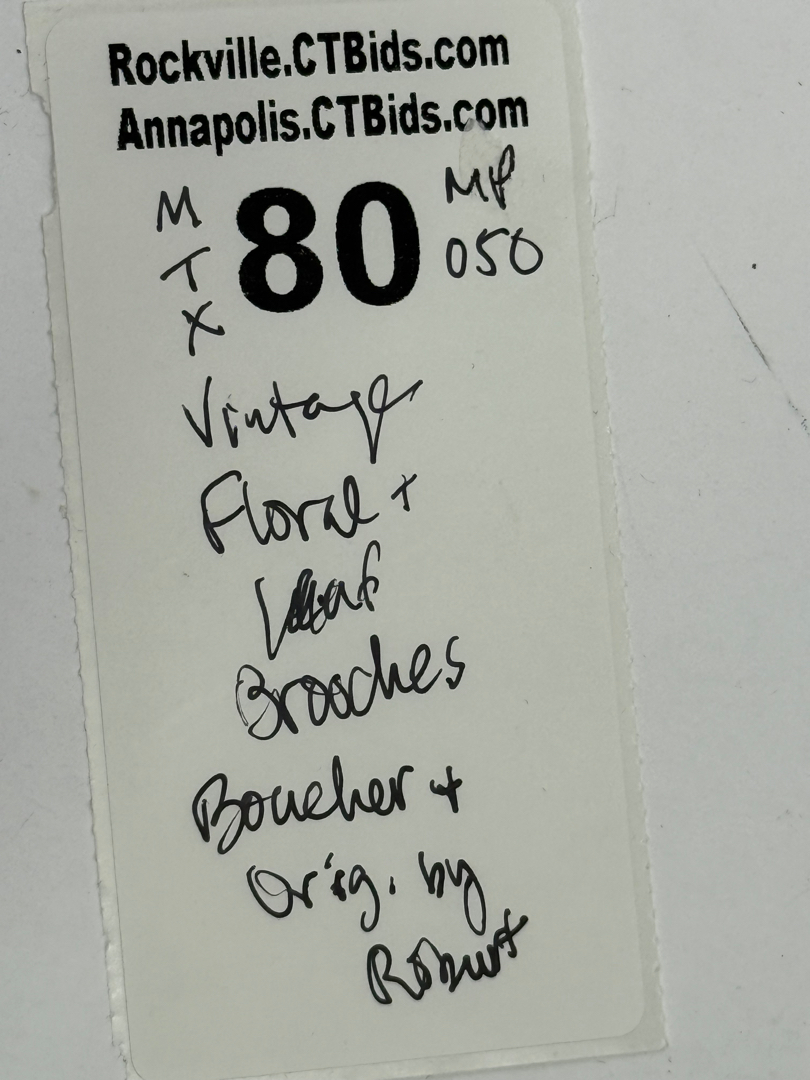 Rockville.CTBids.com
Annapolis.CTBids.com
M
T
X
80
MP
050
Vintage
Floral +
Leaf
Brooches
Boucher +
Orig. by
Robert